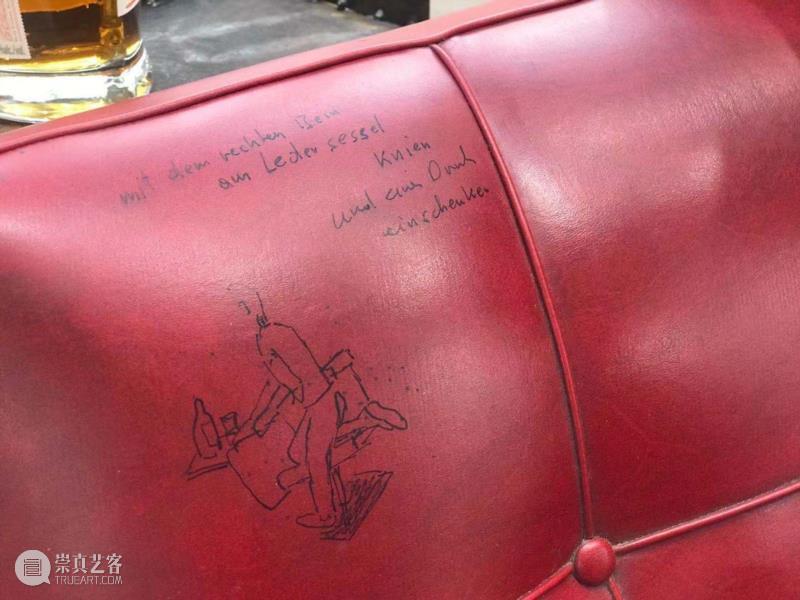 mit dem rechten Bein
am Ledersessel
Knien
und ein Drink
einschenken
崇真艺客
TRUEART.COM